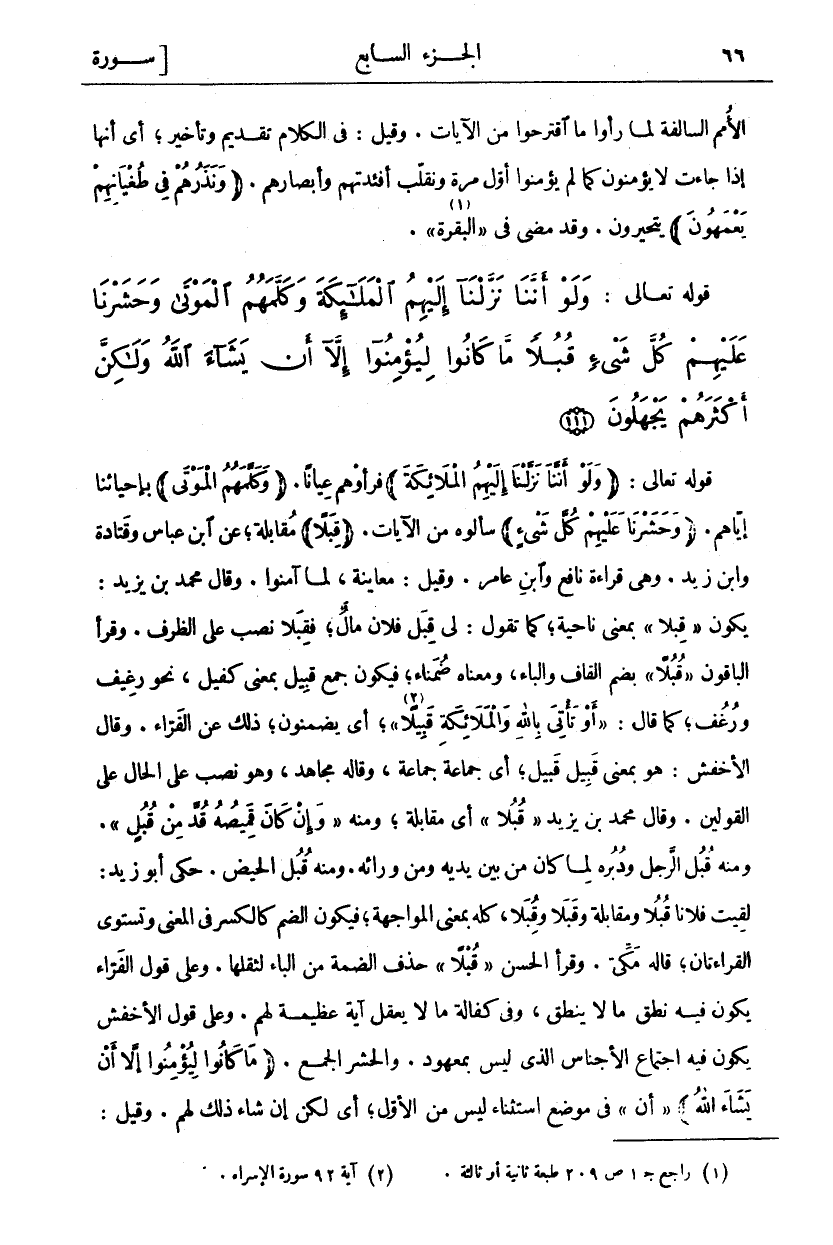 ٦٦ الجـــزء الســـابع [ ســـورة
الأُمم السالفة لمـا رأوا ما ٱقترحوا من الآيات . وقيل : فى الكلام تقـديم وتأخير ؛ أى أنها
إذا جاءت لا يؤمنون كما لم يؤمنوا أوّل مرة ونقلّب أفئدتهم وأبصارهم . ﴿ وَنَذَرُهُمْ فِى طُغْيَانِهِمْ
يَعْمَهُونَ ﴾ يتحيرون . وقد مضى فى «البقرة»(١) .
قوله تعـالى : وَلَوْ أَنَّنَا نَزَّلْنَآ إِلَيْهِمُ ٱلْمَلَـٰٓئِكَةَ وَكَلَّمَهُمُ ٱلْمَوْتَىٰ وَحَشَرْنَا
عَلَيْهِـمْ كُلَّ شَىْءٍ قُبُـلًا مَّا كَانُوا لِيُؤْمِنُوٓا إِلَّآ أَن يَشَآءَ ٱللَّهُ وَلَـٰكِنَّ
أَكْثَرَهُمْ يَجْهَلُونَ ١١١
قوله تعالى : ﴿ وَلَوْ أَنَّنَا نَزَّلْنَا إِلَيْهِمُ الْمَلَائِكَةَ ﴾ فرأوهم عِيانًا . ﴿ وَكَلَّمَهُمُ الْمَوْتَى ﴾ بإحيائنا
إيّاهم . ﴿ وَحَشَرْنَا عَلَيْهِمْ كُلَّ شَىْءٍ ﴾ سألوه من الآيات . ﴿ قِبَلًا ﴾ مُقابلة ؛ عن ٱبن عباس وقتادة
وابن زيد . وهى قراءة نافع وٱبن عامر . وقيل : معاينة ، لمـا آمنوا . وقال محمد بن يزيد :
يكون « قِبلا » بمعنى ناحية ؛ كما تقول : لى قِبَل فلان مالٌ ؛ فقِبَلا نصب على الظرف . وقرأ
الباقون «قُبُلًا» بضم القاف والباء ، ومعناه ضُمَناء ؛ فيكون جمع قبِيل بمعنى كفيل ، نحو رغِيف
ورُغُف ؛ كما قال : «أَوْ تَأْتِىَ بِاللهِ وَالْمَلَائِكَةِ قَبِيلًا(٢)» ؛ أى يضمنون ؛ ذلك عن الفَرّاء . وقال
الأخفش : هو بمعنى قَبِيل قَبيل ؛ أى جماعة جماعة ، وقاله مجاهد ، وهو نصب على الحال على
القولين . وقال محمد بن يزيد « قُبُلا » أى مقابلة ؛ ومنه « وَإِنْ كَانَ قَمِيصُهُ قُدَّ مِنْ قُبُلٍ » .
ومنه قُبُل الرَّجل ودُبُره لما كان من بين يديه ومن ورائه . ومنه قُبُل الحيض . حكى أبو زيد :
لقِيت فلانا قُبُلا ومقابلة وقَبَلا وقُبُلا ، كله بمعنى المواجهة ؛ فيكون الضم كالكسر فى المعنى وتستوى
القراءتان ؛ قاله مَكّىّ . وقرأ الحسن « قُبْلًا » حذف الضمة من الباء لثقلها . وعلى قول الفَرّاء
يكون فيـه نطق ما لا ينطق ، وفى كفالة ما لا يعقل آية عظيمـة لهم . وعلى قول الأخفش
يكون فيه اجتماع الأجناس الذى ليس بمعهود . والحشر الجمـع . ﴿ مَا كَانُوا لِيُؤْمِنُوا إلَّا أَنْ
يَشَاءَ اللهُ ﴾ « أن » فى موضع استثناء ليس من الأوّل ؛ أى لكن إن شاء ذلك لهم . وقيل :
(١) راجع جـ ١ ص ٢٠٩ طبعة ثانية أو ثالثة . (٢) آية ٩٢ سورة الإسراء .